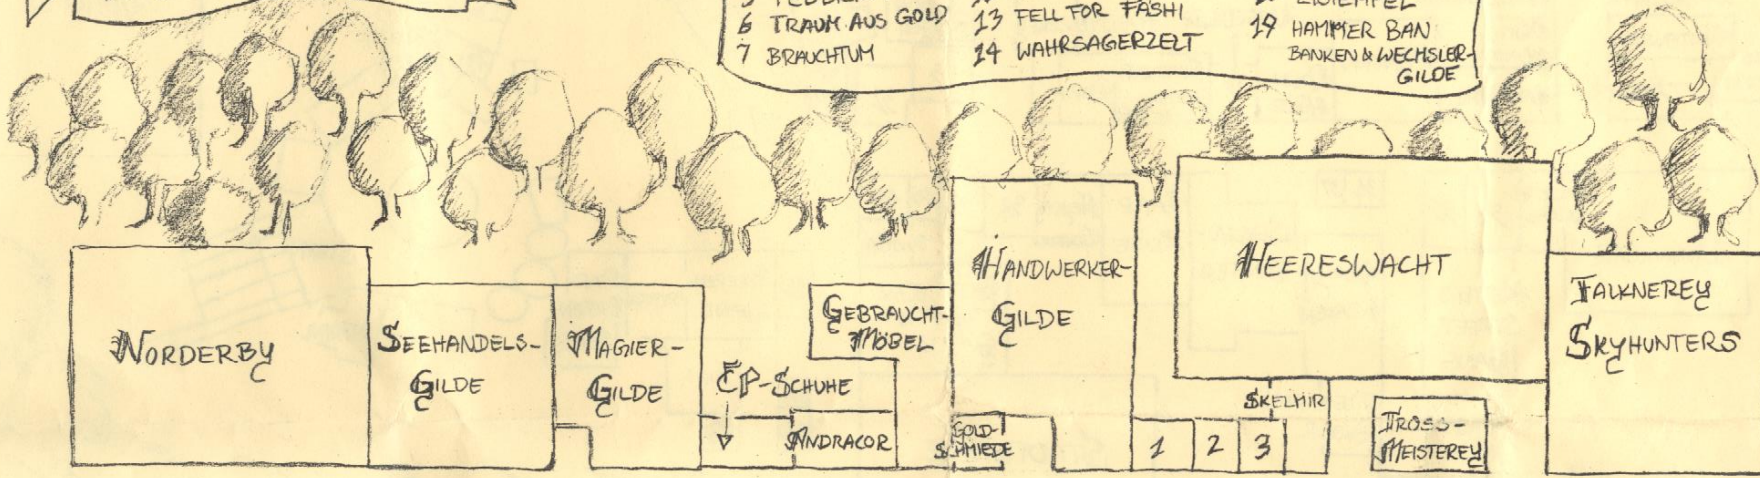 6 TRAUM AUS GOLD
7 BRAUCHTUM
13 FELL FOR FASHI
14 WAHRSAGERZELT
19 HAMMER BAN
BANKEN & WECHSLER-
GILDE
NORDERBY
SEEHANDELS-
GILDE
MAGIER-
GILDE
EP-SCHUHE
GEBRAUCHT-
MÖBEL
ANDRACOR
HANDWERKER-
GILDE
GOLD-
SCHMIEDE
1 2 3
HEERESWACHT
SKELHIR
TROSS-
MEISTEREY
FALKNEREY
SKYHUNTERS